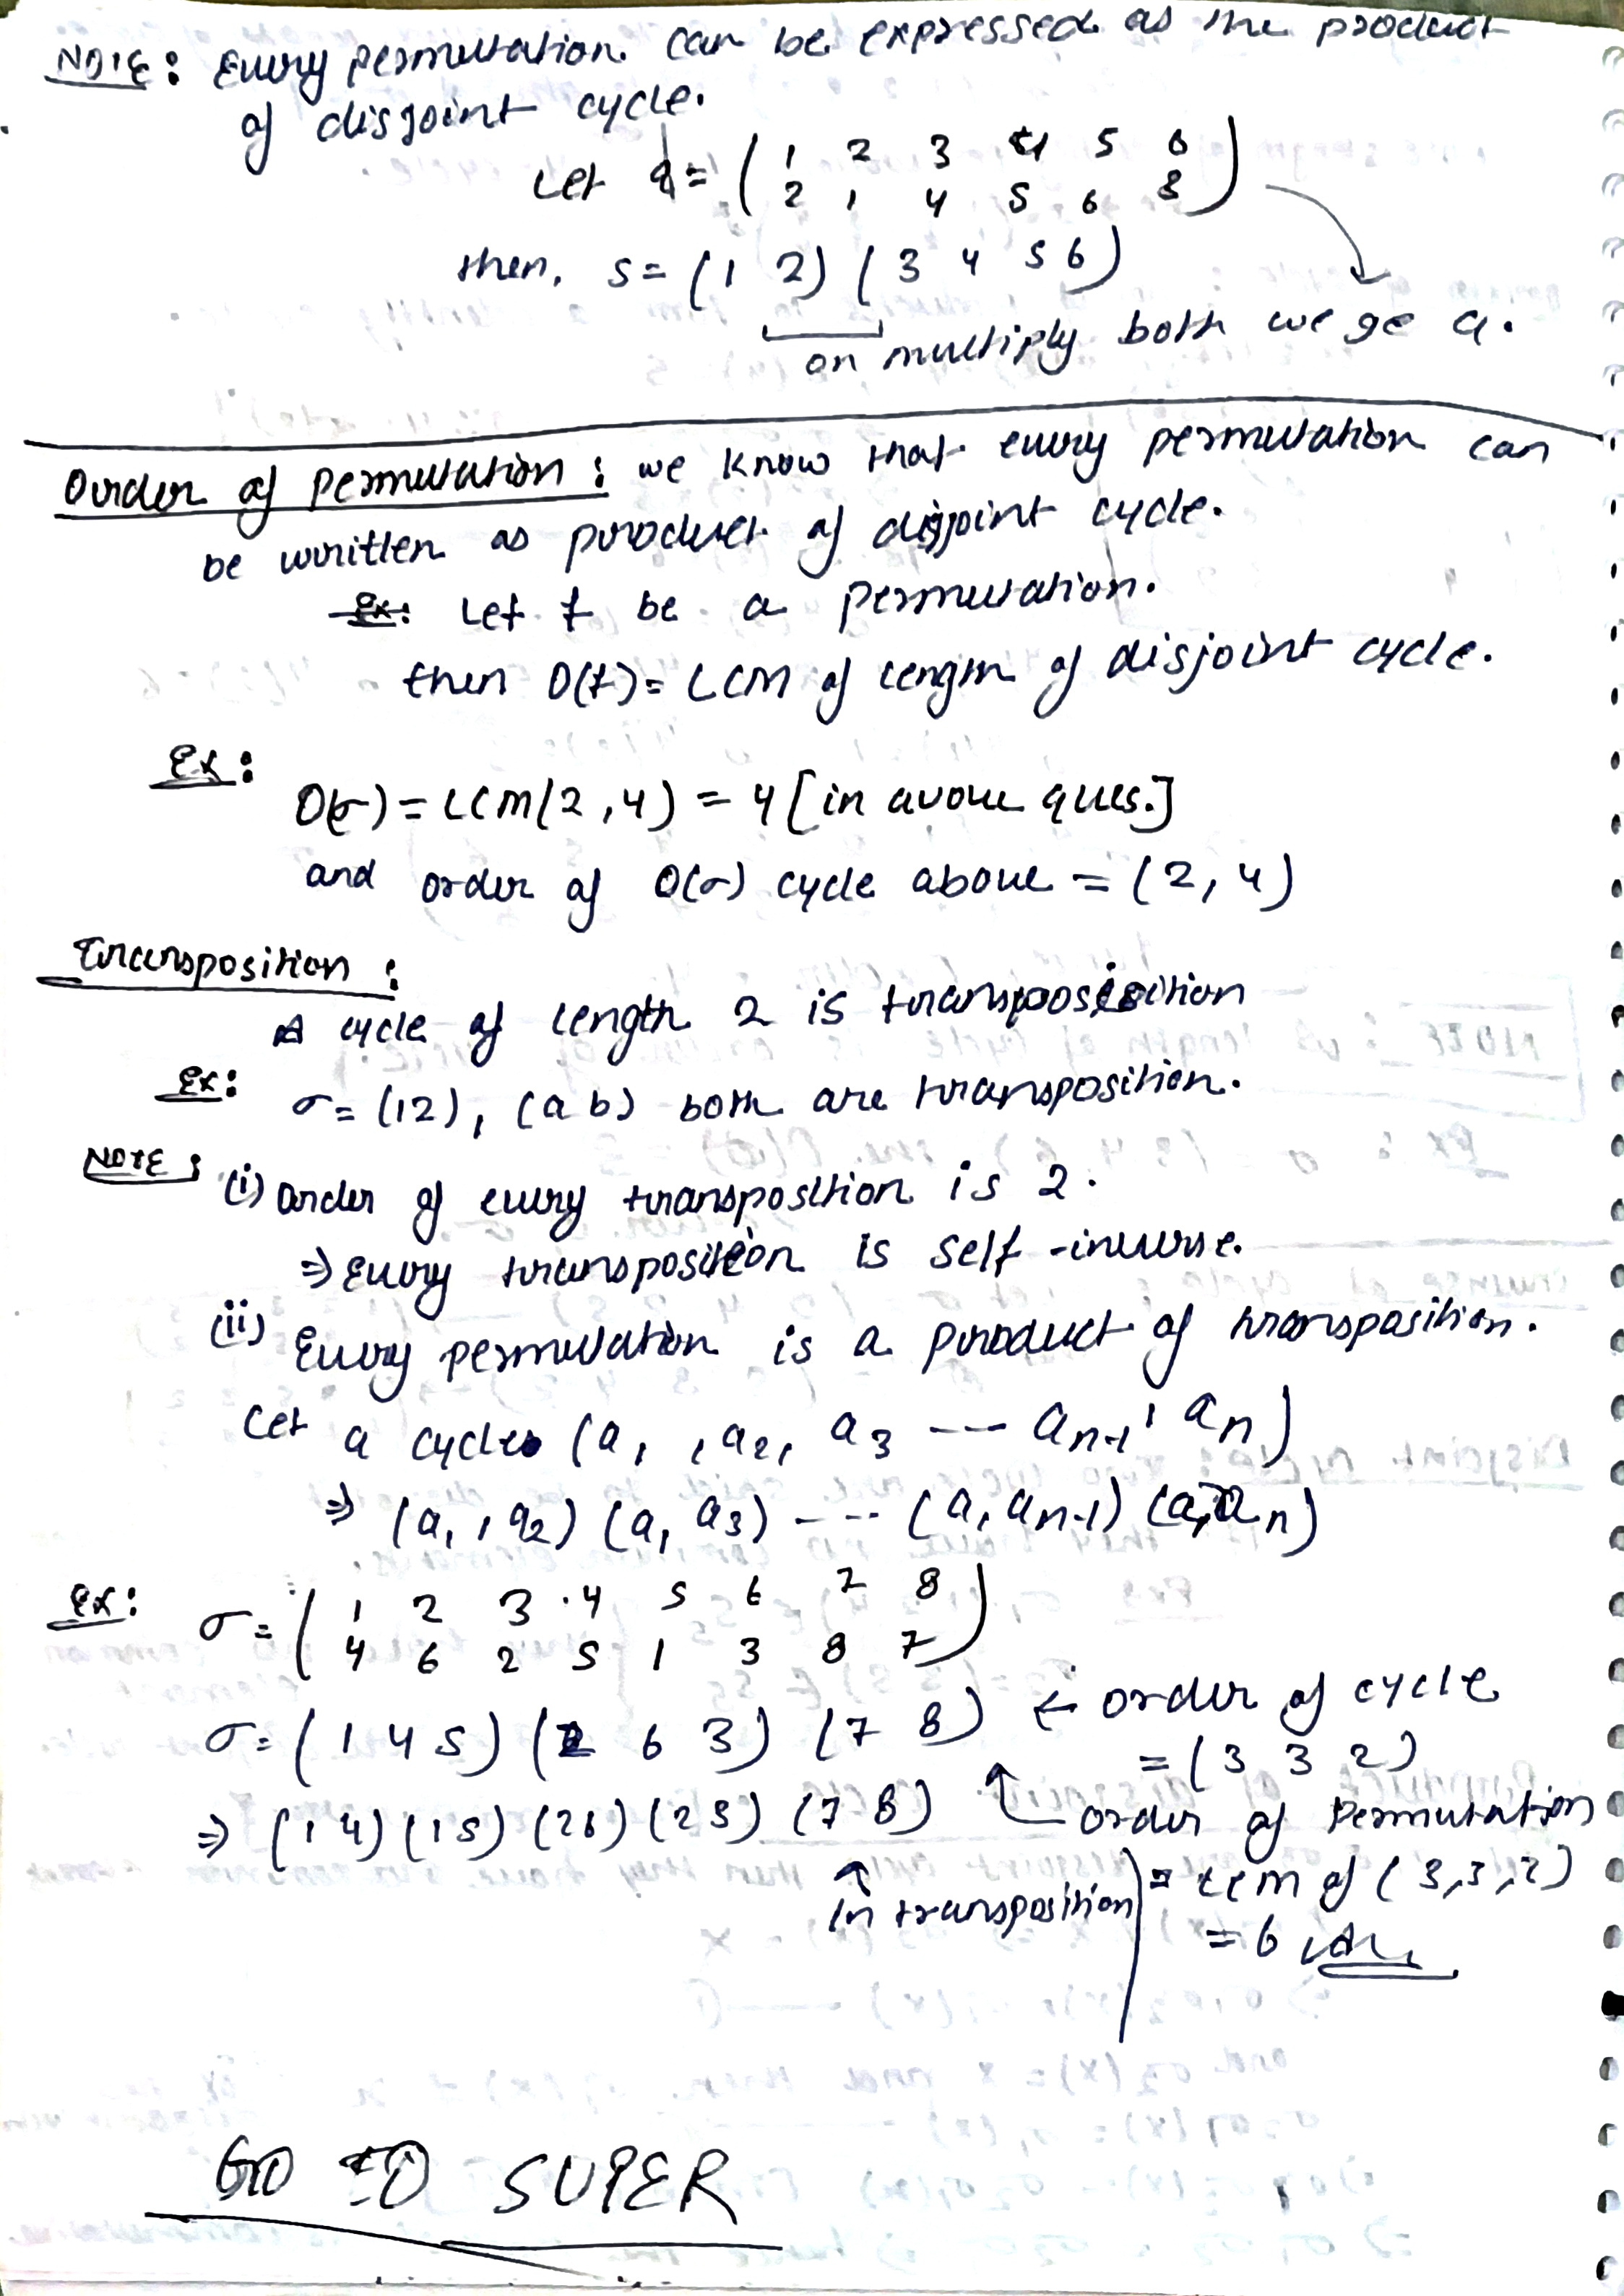 NOTE: Every permutation can be expressed as the product
of disjoint cycle.
Let = ( 1 2 3 4 5 6
2 1 4 5 6 3 )
then, s = (1 2) (3 4 5 6)
on multiply both we ge a.
Order of permutation: we know that every permutation can
be written as product of disjoint cycle.
Ex: Let f be a permutation.
then O(f) = LCM of length of disjoint cycle.
Ex:
O(σ) = LCM(2,4) = 4 [in avove ques.]
and order of O(σ) cycle above = (2, 4)
Transposition:
A cycle of length 2 is transposition
Ex: σ = (12), (a b) both are transposition.
NOTE: (i) order of every transposition is 2.
⇒ Every transposition is self-inverse.
(ii) Every permutation is a product of transposition.
Let a cycle (a1, a2, a3 --- an-1, an)
⇒ (a1, a2) (a1 a3) ---- (a1 an-1) (a1 an)
Ex: σ = ( 1 2 3 4 5 6 7 8
4 6 2 5 1 3 8 7 )
σ = (1 4 5) (2 6 3) (7 8) ← order of cycle
= (3 3 2)
⇒ (1 4) (1 5) (2 6) (2 3) (7 8) order of Permutation
↑ In transposition = LCM of (3,3,2)
= 6 Ans
GO TO SUPER